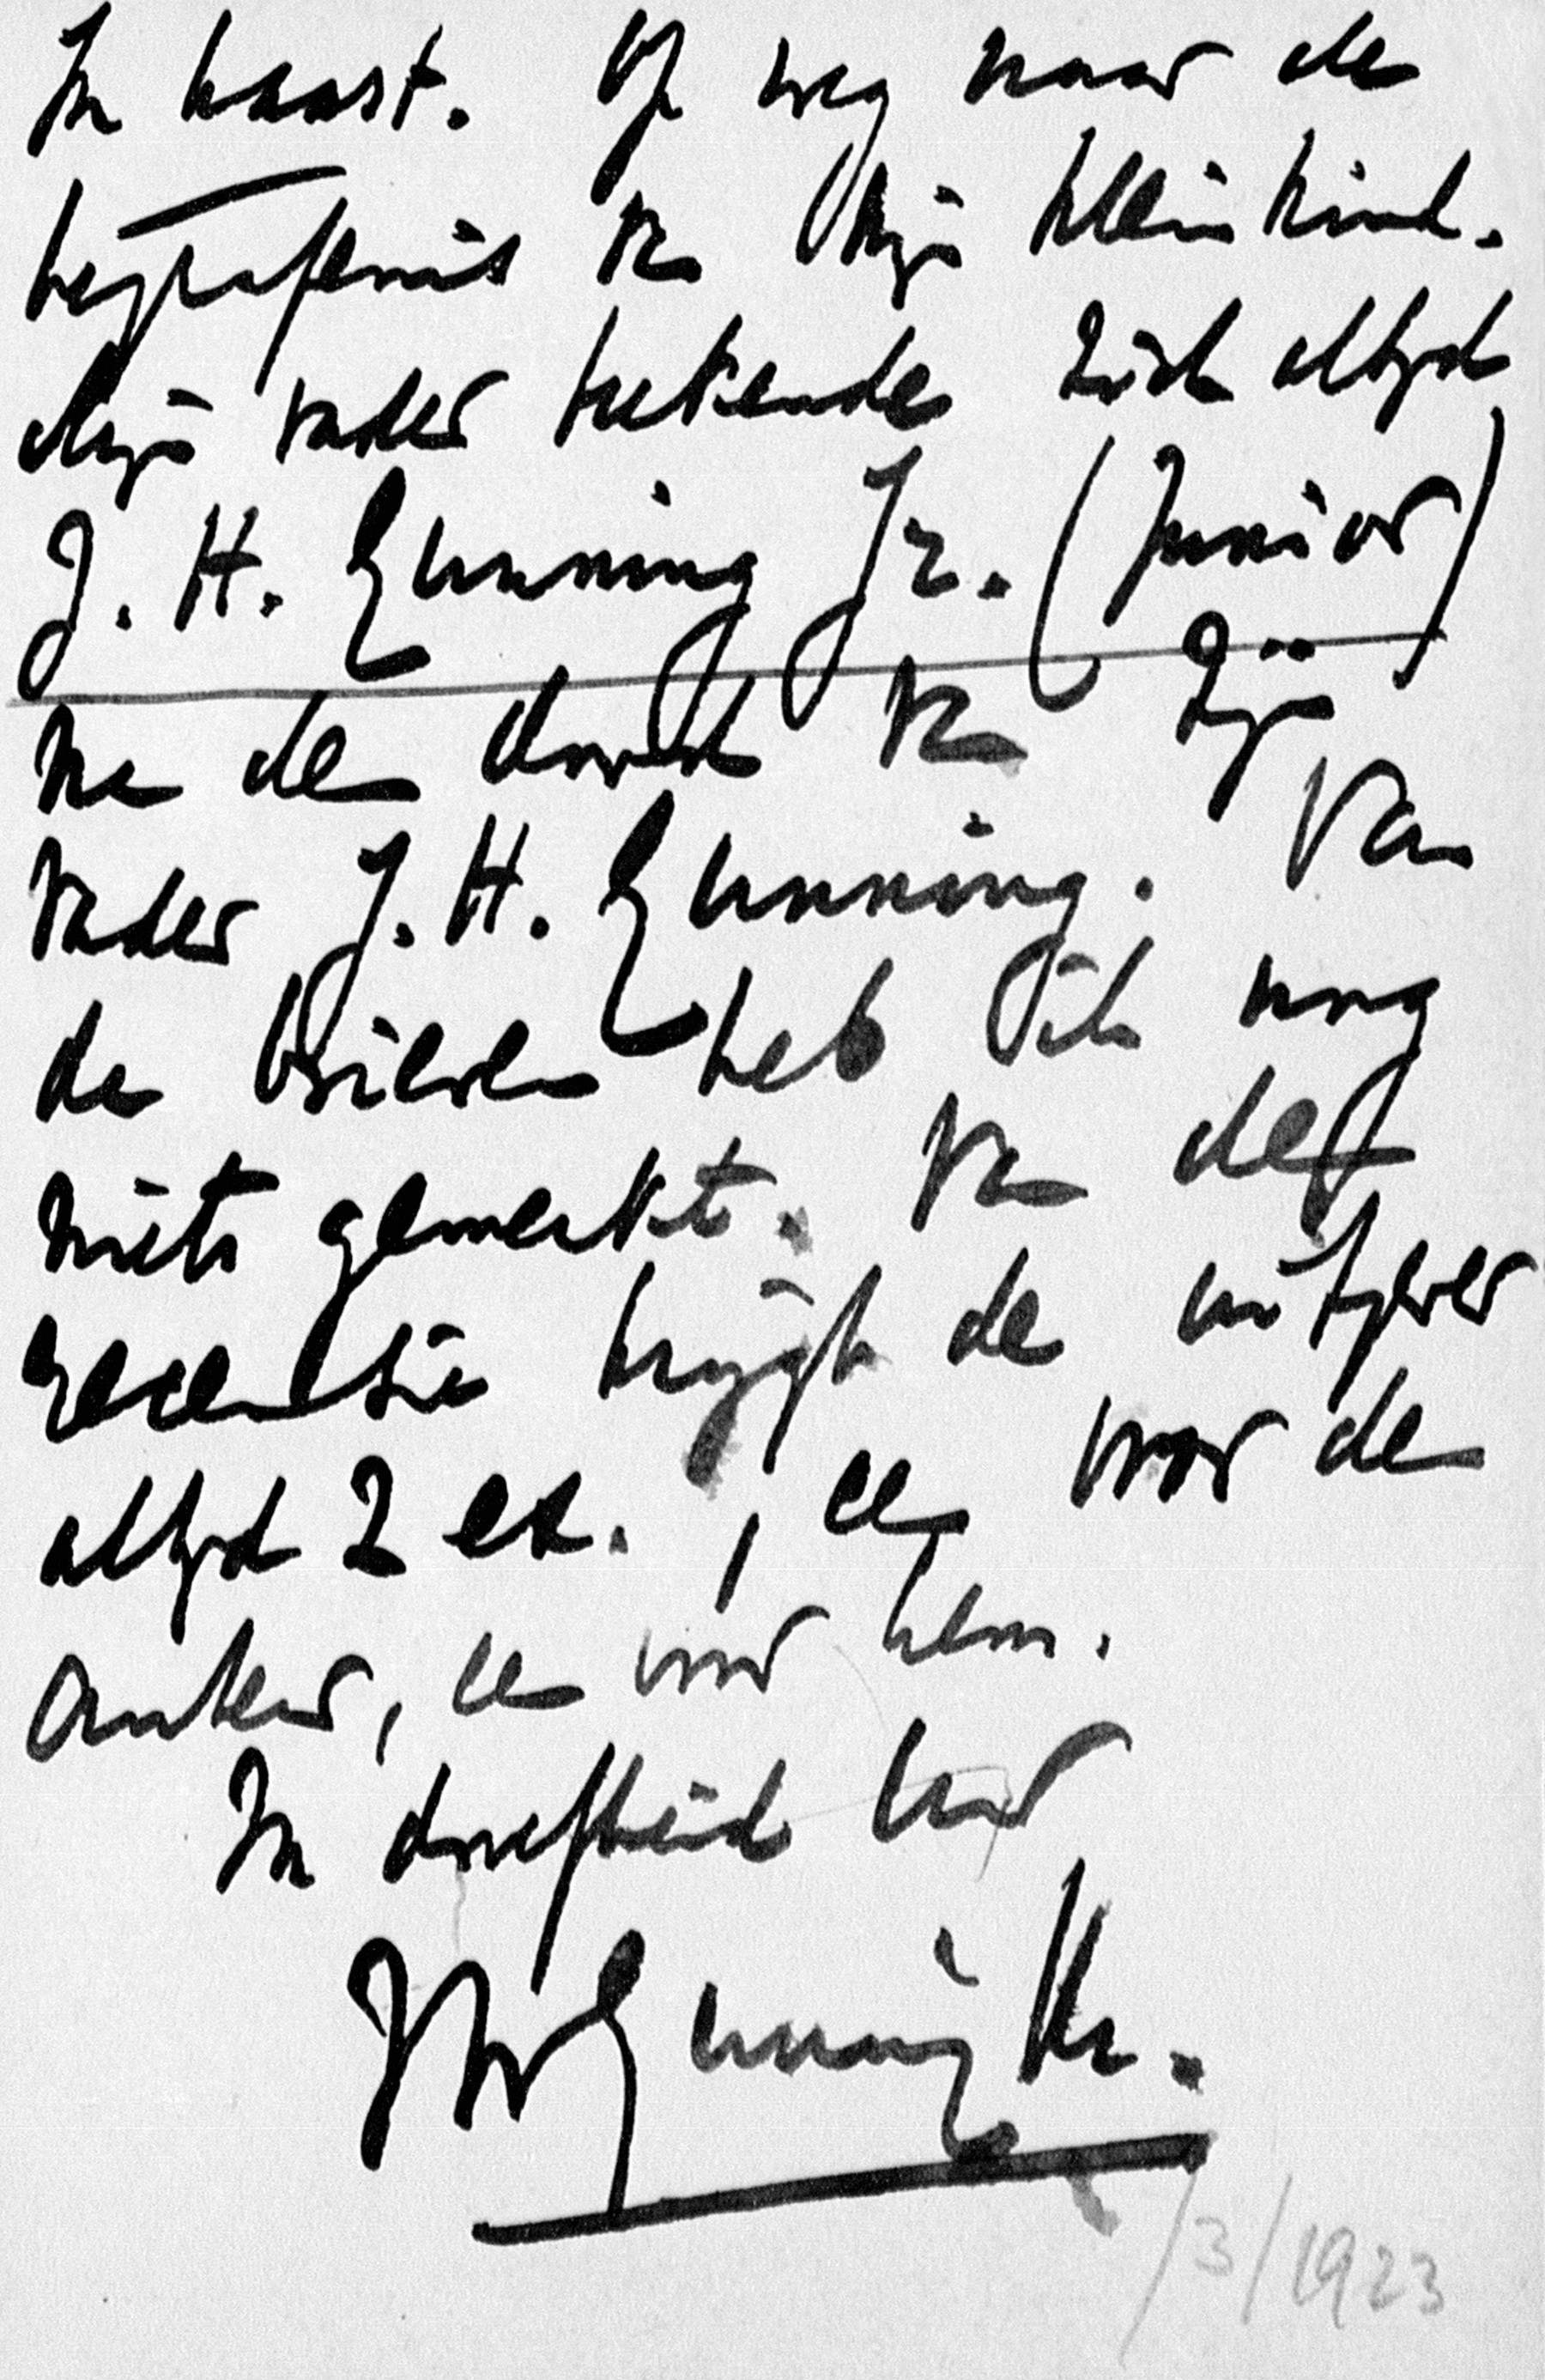 In haast. Op weg naar de
begrafenis van mijn kleinkind.
Mijn vader teekende zich altijd
J. H. Gunning Jr. (Junior)
na de dood van zijn
vader J. H. Gunning. Van
de brieven heb ik nog
niets gemerkt. Van de
recensie krijgt de uitgever
altijd 2 ex., een voor de
auteur, een voor hem.
In droefheid Uw
JHGunning JHz.
/3/1923